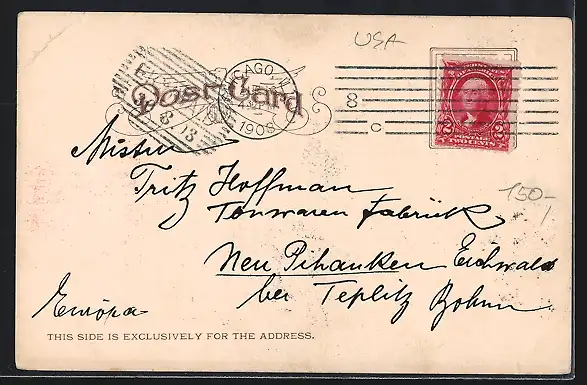 USA
Post Card
CHICAGO, ILL
1908
8
C
POSTAGE
2 2
TWO CENTS
Mister
Fritz Hoffman
Tonwaren Fabrük
150-
Neu Pihanken Eichwald
bei Teplitz Bohm
Európa
THIS SIDE IS EXCLUSIVELY FOR THE ADDRESS.